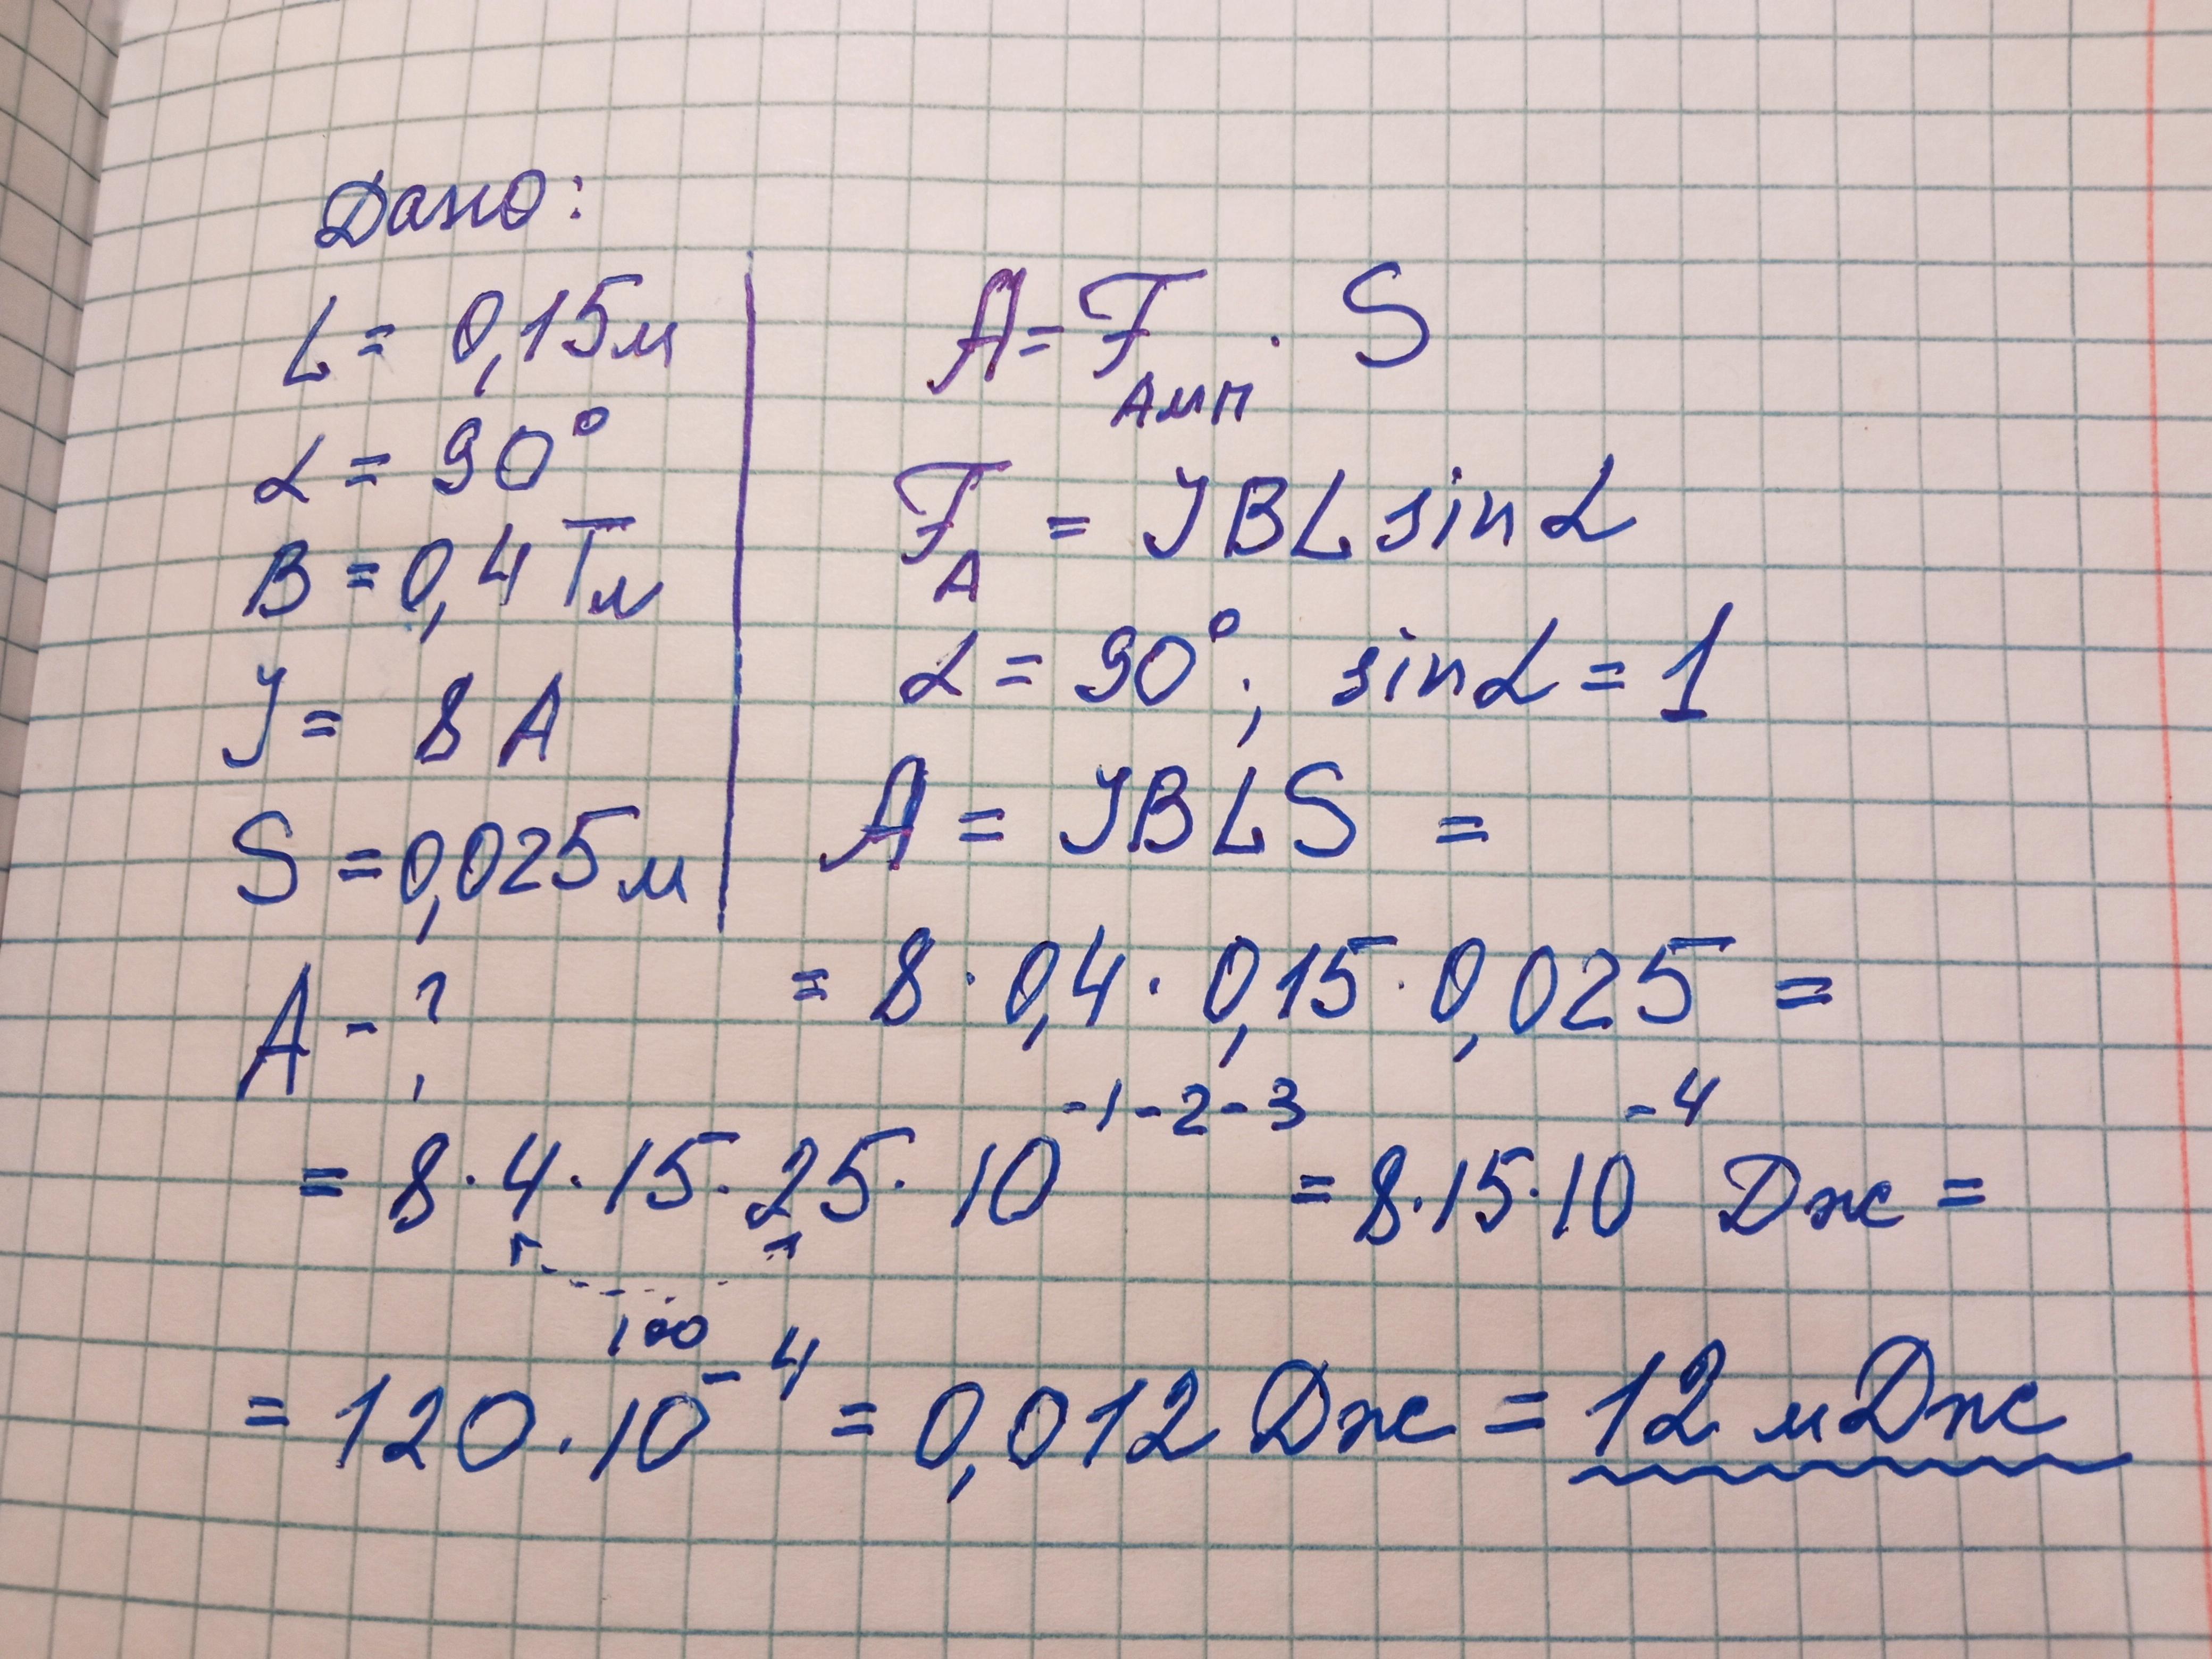 Дано:
L = 0,15 м
α = 90°
B = 0,4 Тл
J = 8 А
S = 0,025 м
A - ?
A = F Амп · S
F A = JBL sin α
α = 90°; sin α = 1
A = JBLS =
= 8 · 0,4 · 0,15 · 0,025 =
= 8 · 4 · 15 · 25 · 10^-1-2-3 = 8 · 15 · 10^-4 Дж =
100
= 120 · 10^-4 = 0,012 Дж = 12 мДж